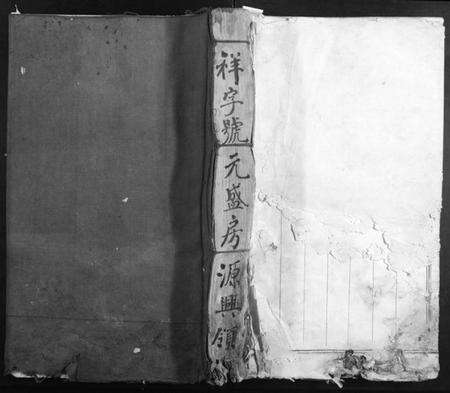 祥字號
元盛房
源興領